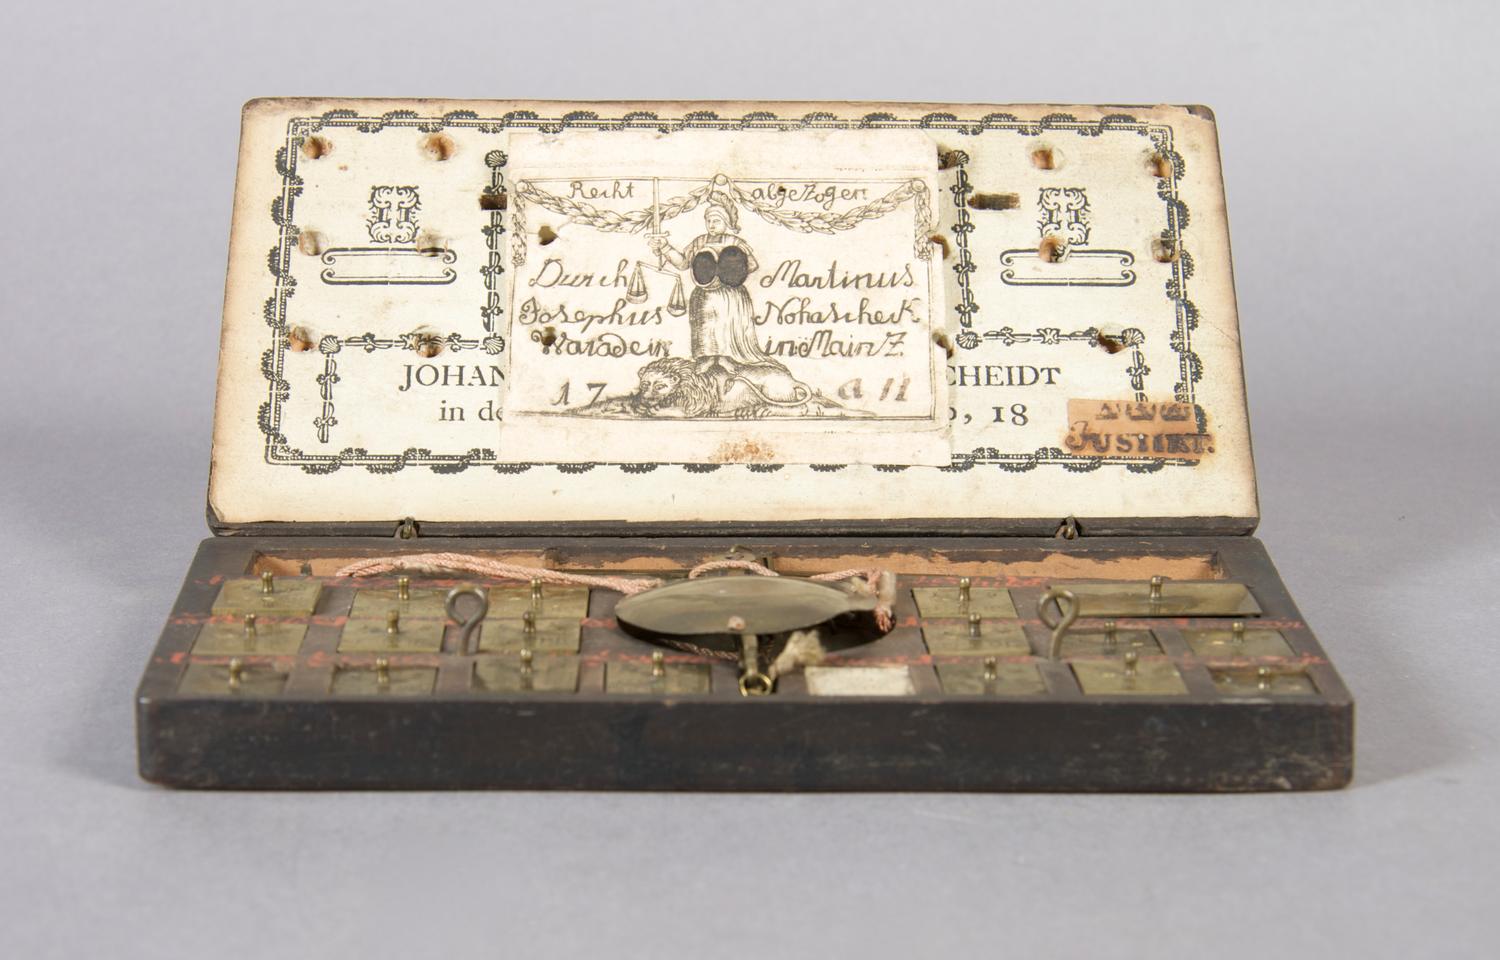 Recht abgeZogen
Durch Martinus
Josephus Nohascheck
Waradein in MainZ.
17 a 11
JOHAN CHEIDT
in de , 18
JUSTIRT.